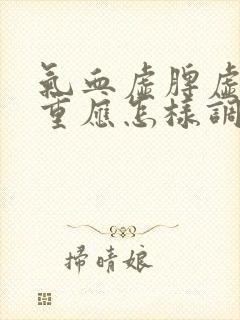 氣血虛脾虛
重應怎樣調
掃晴娘